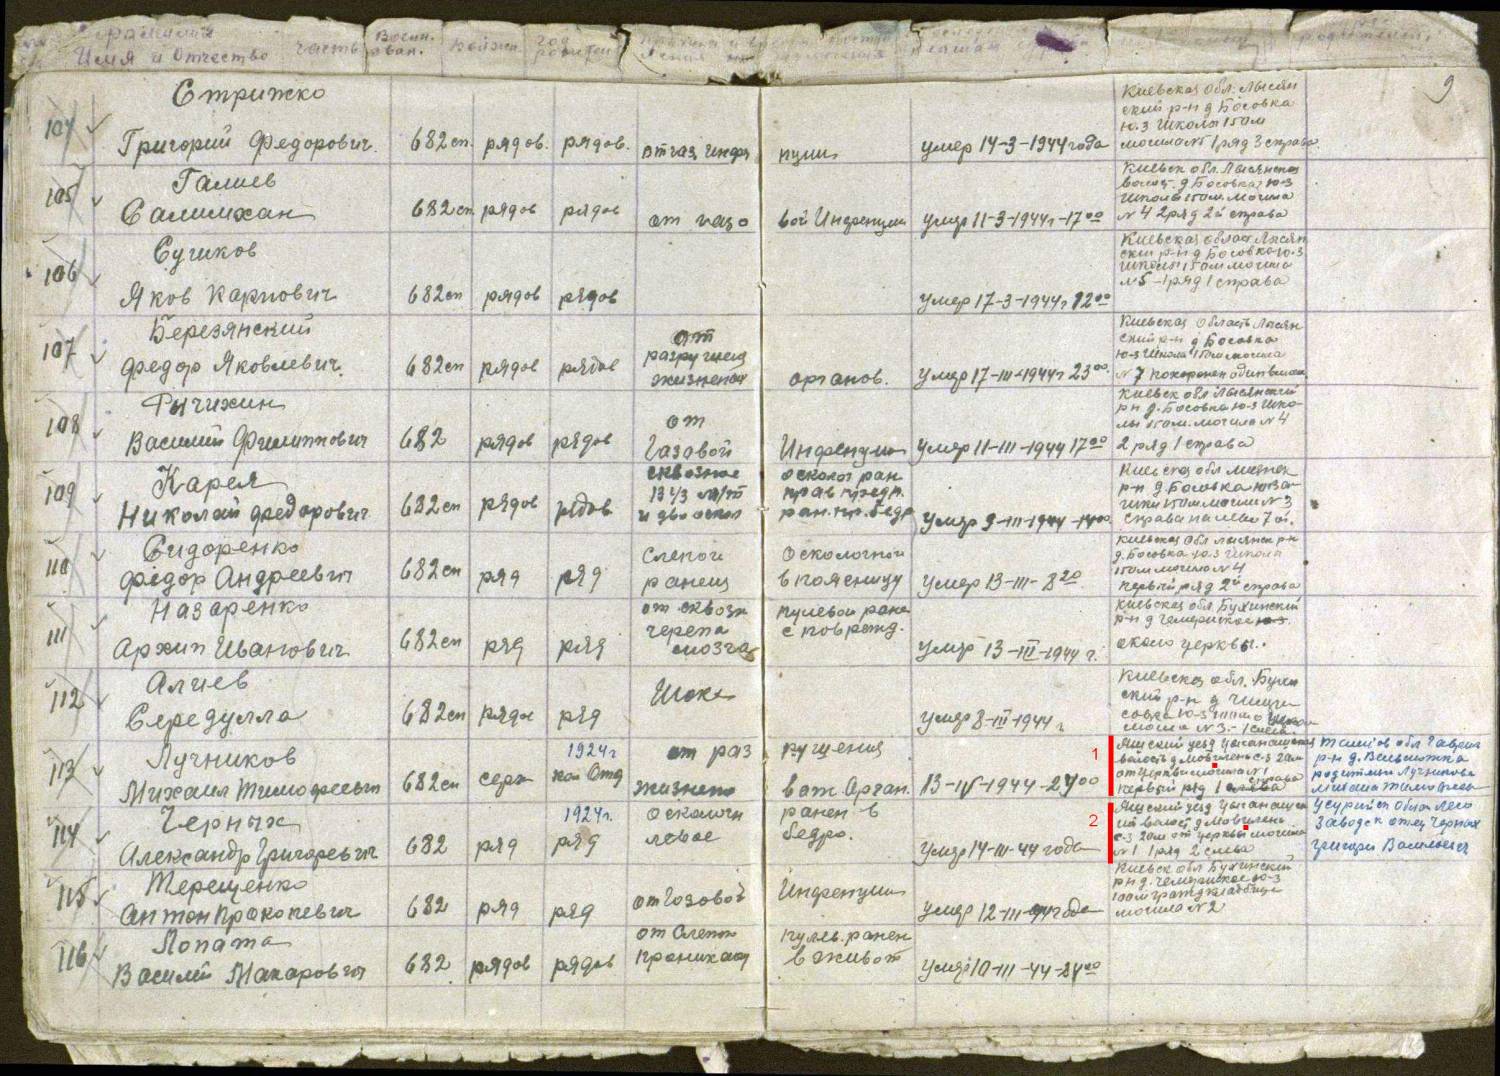 Фамилия
Имя и Отчество часть Воен. зван. Должн. год рожден
9
Стрижко
104 Григорий Федорович 682сп. рядов. рядов. от газ. Инфек ции умер 14-3-1944 года
Киевская Обл. Лысян
ский р-н д Босовка
Ю.З Школы 150м
могила №1 ряд 3 справа
Галиев
105 Салимхан 682сп рядов рядов от газо вой Инфекции умер 11-3-1944г-17⁰⁰
Киевск обл. Лысянская
волост. д Босовка Ю-З
Школы 150м. могила
№4 2 ряд 2й справа
Сушков
106 Яков Карпович 682сп рядов рядов умер 17-3-1944г 12⁰⁰
Киевская област Лысян
ский р-н д Босовка Ю-З
Школы 150м могила
№5 - 1 ряд 1 справа
Березянский
107 Федор Яковлевич. 682сп рядов рядов от разрушения жизненых органов. умер 17-III-1944г 23⁰⁰
Киевская Область Лысян
ский р-н д Босовка
Ю-З Школы 150м могила
№7 похоронен один
Рычихин
108 Василий Филиппович 682 рядов рядов от Газовой Инфекции умер 11-III-1944 17⁰⁰
Киевск обл Лысянский
р-н д. Босовка Ю-З Шко-
лы 150м. могила №4
2 ряд 1 справа
Карея
109 Николай Федорович 682сп рядов рядов сквозное 1/3 и два оскол осколоч ран прав предп. ран. пр. бедр умер 9-III-1944 -14⁰⁰
Киевская обл Лысянск
р-н д. Босовка Ю-За-
150м могила №3
справа налево 7й.
Сидоренко
110 Федор Андреевич 682сп ряд ряд Слепой ранени Осколочной в поясницу умер 13-III- 8²⁰
Киевская Обл Лысянск р-н
д. Босовка Ю-З Школа
150м могила №4
первый ряд 2й справа
Назаренко
111 Архип Иванович 682сп ряд ряд от сквозн черепа мозга пулевой ране с поврежд. умер 13-III-1944 г.
Киевская обл Бужинский
р-н д Чемериское Ю-З
около церквы.
Алиев
112 Середулла 682сп рядов ряд Шок умер 8-III-1944 г
Киевская обл. Бужи
ский р-н д
Ю-З
могила №3.-1 слева
Лучников
113 Михаил Тимофеевич 682сп серж 1924г ком Отд от раз рушения жизнено важ Орган. 13-IV-1944-24⁰⁰
1
Яшский уезд Цыганашская
волость д Мовилени с-з 20м
от церквы могила №1
первый ряд 1 справа слева
Тамбов обл Гаврил
р-н д.
родители Лучникова
Михаила Тимофеев
Черных
114 Александр Григоревич 682 ряд 1924г. ряд осколочн левое ранен в бедро. умер 14-III-44 года
2
Яшский уезд Цыганашск
ий волост д Мовилени
с-з 20м от церквы могила
№1 1 ряд 2 слева
Усурийск область
Заводск отец Черных
Григори Васильевич
Терещенко
115 Антон Прокопевич 682 ряд ряд от Газовой Инфекции умер 12-III-44 года
Киевск обл Бужинский
р-н д. Чемериское Ю-З
100м гражд кладбище
могила №2
Лопата
116 Василий Макарович 682 рядов рядов от Слепой проникаю пулев. ранен в живот умер 10-III-44-24⁰⁰